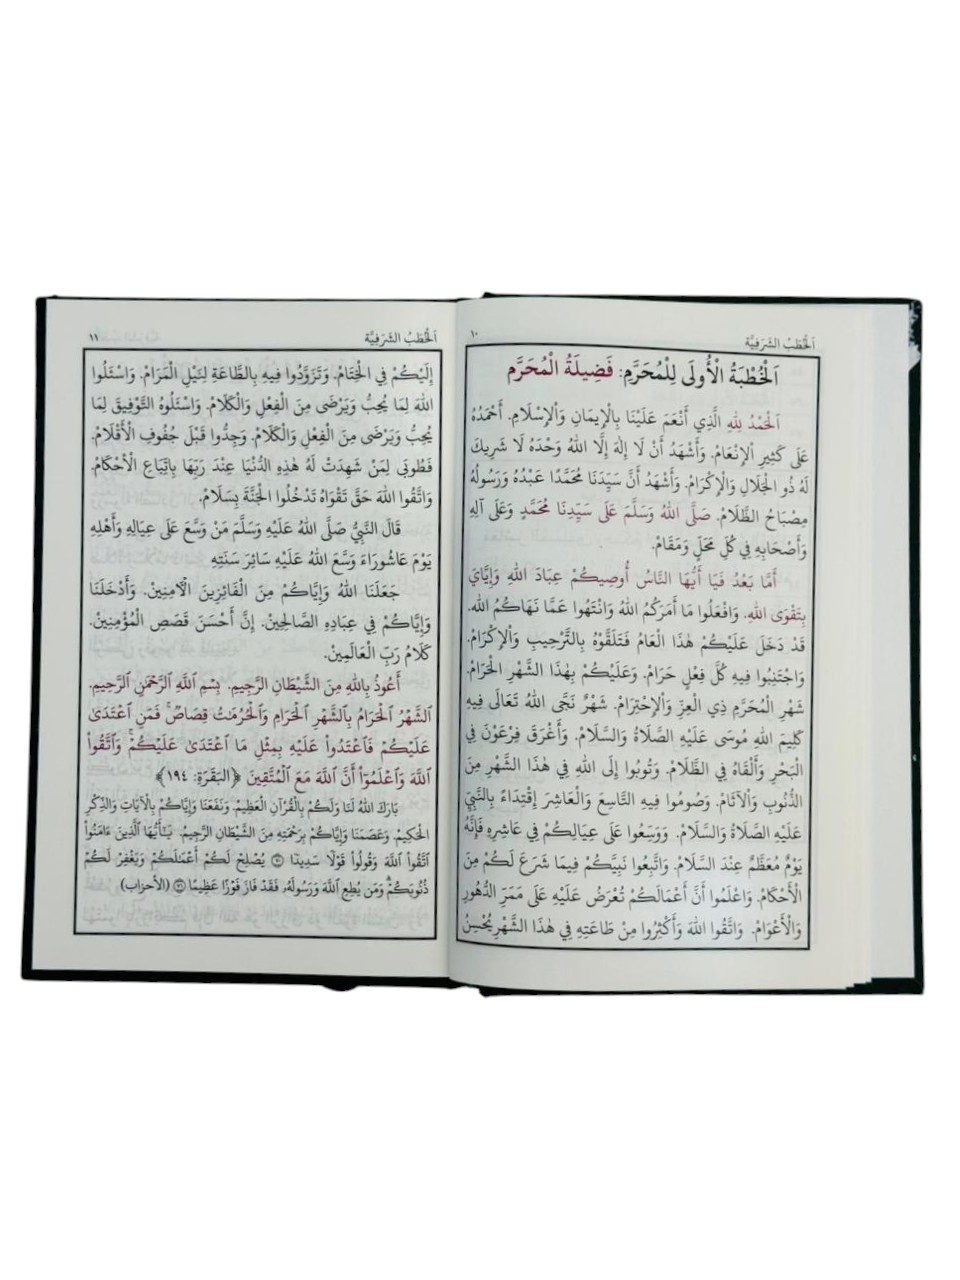 اَلْخُطَبُ الشَّرَفِيَّة
١٠
اَلْخُطْبَةُ الْأُولَى لِلْمُحَرَّمِ: فَضِيلَةُ الْمُحَرَّم
اَلْحَمْدُ لِلّٰهِ الَّذِي أَنْعَمَ عَلَيْنَا بِالْإِيمَانِ وَالْإِسْلَامِ. أَحْمَدُهُ
عَلَى كَثِيرِ الْإِنْعَامْ. وَأَشْهَدُ أَنْ لَا إِلٰهَ إِلَّا اللهُ وَحْدَهُ لَا شَرِيكَ
لَهُ ذُو الْجَلَالِ وَالْإِكْرَامْ. وَأَشْهَدُ أَنَّ سَيِّدَنَا مُحَمَّدًا عَبْدُهُ وَرَسُولُهُ
مِصْبَاحُ الظَّلَامْ. صَلَّى اللهُ وَسَلَّمَ عَلَى سَيِّدِنَا مُحَمَّدٍ وَعَلَى آلِهِ
وَأَصْحَابِهِ فِي كُلِّ مَحَلٍّ وَمَقَامْ.
أَمَّا بَعْدُ فَيَا أَيُّهَا النَّاسُ أُوصِيكُمْ عِبَادَ اللهِ وَإِيَّايَ
بِتَقْوَى اللهِ. وَافْعَلُوا مَا أَمَرَكُمُ اللهُ وَانْتَهُوا عَمَّا نَهَاكُمُ الله.
قَدْ دَخَلَ عَلَيْكُمْ هٰذَا الْعَامُ فَتَلَقَّوْهُ بِالتَّرْحِيبِ وَالْإِكْرَامْ.
وَاجْتَنِبُوا فِيهِ كُلَّ فِعْلٍ حَرَامْ. وَعَلَيْكُمْ بِهٰذَا الشَّهْرِ الْحَرَامْ.
شَهْرِ الْمُحَرَّمِ ذِي الْعِزِّ وَالْإِحْتِرَامْ. شَهْرٌ نَجَّى اللهُ تَعَالَى فِيهِ
كَلِيمَ اللهِ مُوسَى عَلَيْهِ الصَّلَاةُ وَالسَّلَامْ. وَأَغْرَقَ فِرْعَوْنَ فِي
الْبَحْرِ وَأَلْقَاهُ فِي الظَّلَامْ. وَتُوبُوا إِلَى اللهِ فِي هٰذَا الشَّهْرِ مِنَ
الذُّنُوبِ وَالْآثَامْ. وَصُومُوا فِيهِ التَّاسِعَ وَالْعَاشِرَ إِقْتِدَاءً بِالنَّبِيِّ
عَلَيْهِ الصَّلَاةُ وَالسَّلَامْ. وَوَسِّعُوا عَلَى عِيَالِكُمْ فِي عَاشِرِهِ فَإِنَّهُ
يَوْمٌ مُعَظَّمٌ عِنْدَ السَّلَامْ. وَاتَّبِعُوا نَبِيَّكُمْ فِيمَا شَرَعَ لَكُمْ مِنَ
الْأَحْكَامْ. وَاعْلَمُوا أَنَّ أَعْمَالَكُمْ تُعْرَضُ عَلَيْهِ عَلَى مَمَرِّ الدُّهُورِ
وَالْأَعْوَامْ. وَاتَّقُوا اللهَ وَأَكْثِرُوا مِنْ طَاعَتِهِ فِي هٰذَا الشَّهْرِ يُحْسِنُ
اَلْخُطَبُ الشَّرَفِيَّة
١١
إِلَيْكُمْ فِي الْخِتَامْ. وَتَزَوَّدُوا فِيهِ بِالطَّاعَةِ لِنَيْلِ الْمَرَامْ. وَاسْئَلُوا
اللهَ لِمَا يُحِبُّ وَيَرْضَى مِنَ الْفِعْلِ وَالْكَلَامْ. وَاسْئَلُوهُ التَّوْفِيقَ لِمَا
يُحِبُّ وَيَرْضَى مِنَ الْفِعْلِ وَالْكَلَامْ. وَجِدُّوا قَبْلَ جُفُوفِ الْأَقْلَامْ.
فَطُوبَى لِمَنْ شَهِدَتْ لَهُ هٰذِهِ الدُّنْيَا عِنْدَ رَبِّهَا بِاتِّبَاعِ الْأَحْكَامْ.
وَاتَّقُوا اللهَ حَقَّ تَقْوَاهُ تَدْخُلُوا الْجَنَّةَ بِسَلَامْ.
قَالَ النَّبِيُّ صَلَّى اللهُ عَلَيْهِ وَسَلَّمَ مَنْ وَسَّعَ عَلَى عِيَالِهِ وَأَهْلِهِ
يَوْمَ عَاشُورَاءَ وَسَّعَ اللهُ عَلَيْهِ سَائِرَ سَنَتِهِ
جَعَلَنَا اللهُ وَإِيَّاكُمْ مِنَ الْفَائِزِينَ الْآمِنِينْ. وَأَدْخَلَنَا
وَإِيَّاكُمْ فِي عِبَادِهِ الصَّالِحِينْ. إِنَّ أَحْسَنَ قَصَصِ الْمُؤْمِنِينْ.
كَلَامُ رَبِّ الْعَالَمِينْ.
أَعُوذُ بِاللهِ مِنَ الشَّيْطَانِ الرَّجِيمِ. بِسْمِ اللَّهِ الرَّحْمَنِ الرَّحِيمِ.
ٱلشَّهْرُ ٱلْحَرَامُ بِٱلشَّهْرِ ٱلْحَرَامِ وَٱلْحُرُمَٰتُ قِصَاصٌ ۚ فَمَنِ ٱعْتَدَىٰ
عَلَيْكُمْ فَٱعْتَدُوا۟ عَلَيْهِ بِمِثْلِ مَا ٱعْتَدَىٰ عَلَيْكُمْ ۚ وَٱتَّقُوا۟
ٱللَّهَ وَٱعْلَمُوٓا۟ أَنَّ ٱللَّهَ مَعَ ٱلْمُتَّقِينَ ﴿البَقَرَة: ١٩٤﴾
بَارَكَ اللهُ لَنَا وَلَكُمْ بِالْقُرْآنِ الْعَظِيمْ. وَنَفَعَنَا وَإِيَّاكُمْ بِالْآيَاتِ وَالذِّكْرِ
الْحَكِيمْ. وَعَصَمَنَا وَإِيَّاكُمْ بِرَحْمَتِهِ مِنَ الشَّيْطَانِ الرَّجِيمْ. يَٰٓأَيُّهَا ٱلَّذِينَ ءَامَنُوا۟
ٱتَّقُوا۟ ٱللَّهَ وَقُولُوا۟ قَوْلًا سَدِيدًا ۝٧٠ يُصْلِحْ لَكُمْ أَعْمَٰلَكُمْ وَيَغْفِرْ لَكُمْ
ذُنُوبَكُمْ ۗ وَمَن يُطِعِ ٱللَّهَ وَرَسُولَهُۥ فَقَدْ فَازَ فَوْزًا عَظِيمًا ۝٧١ (الأحزاب)